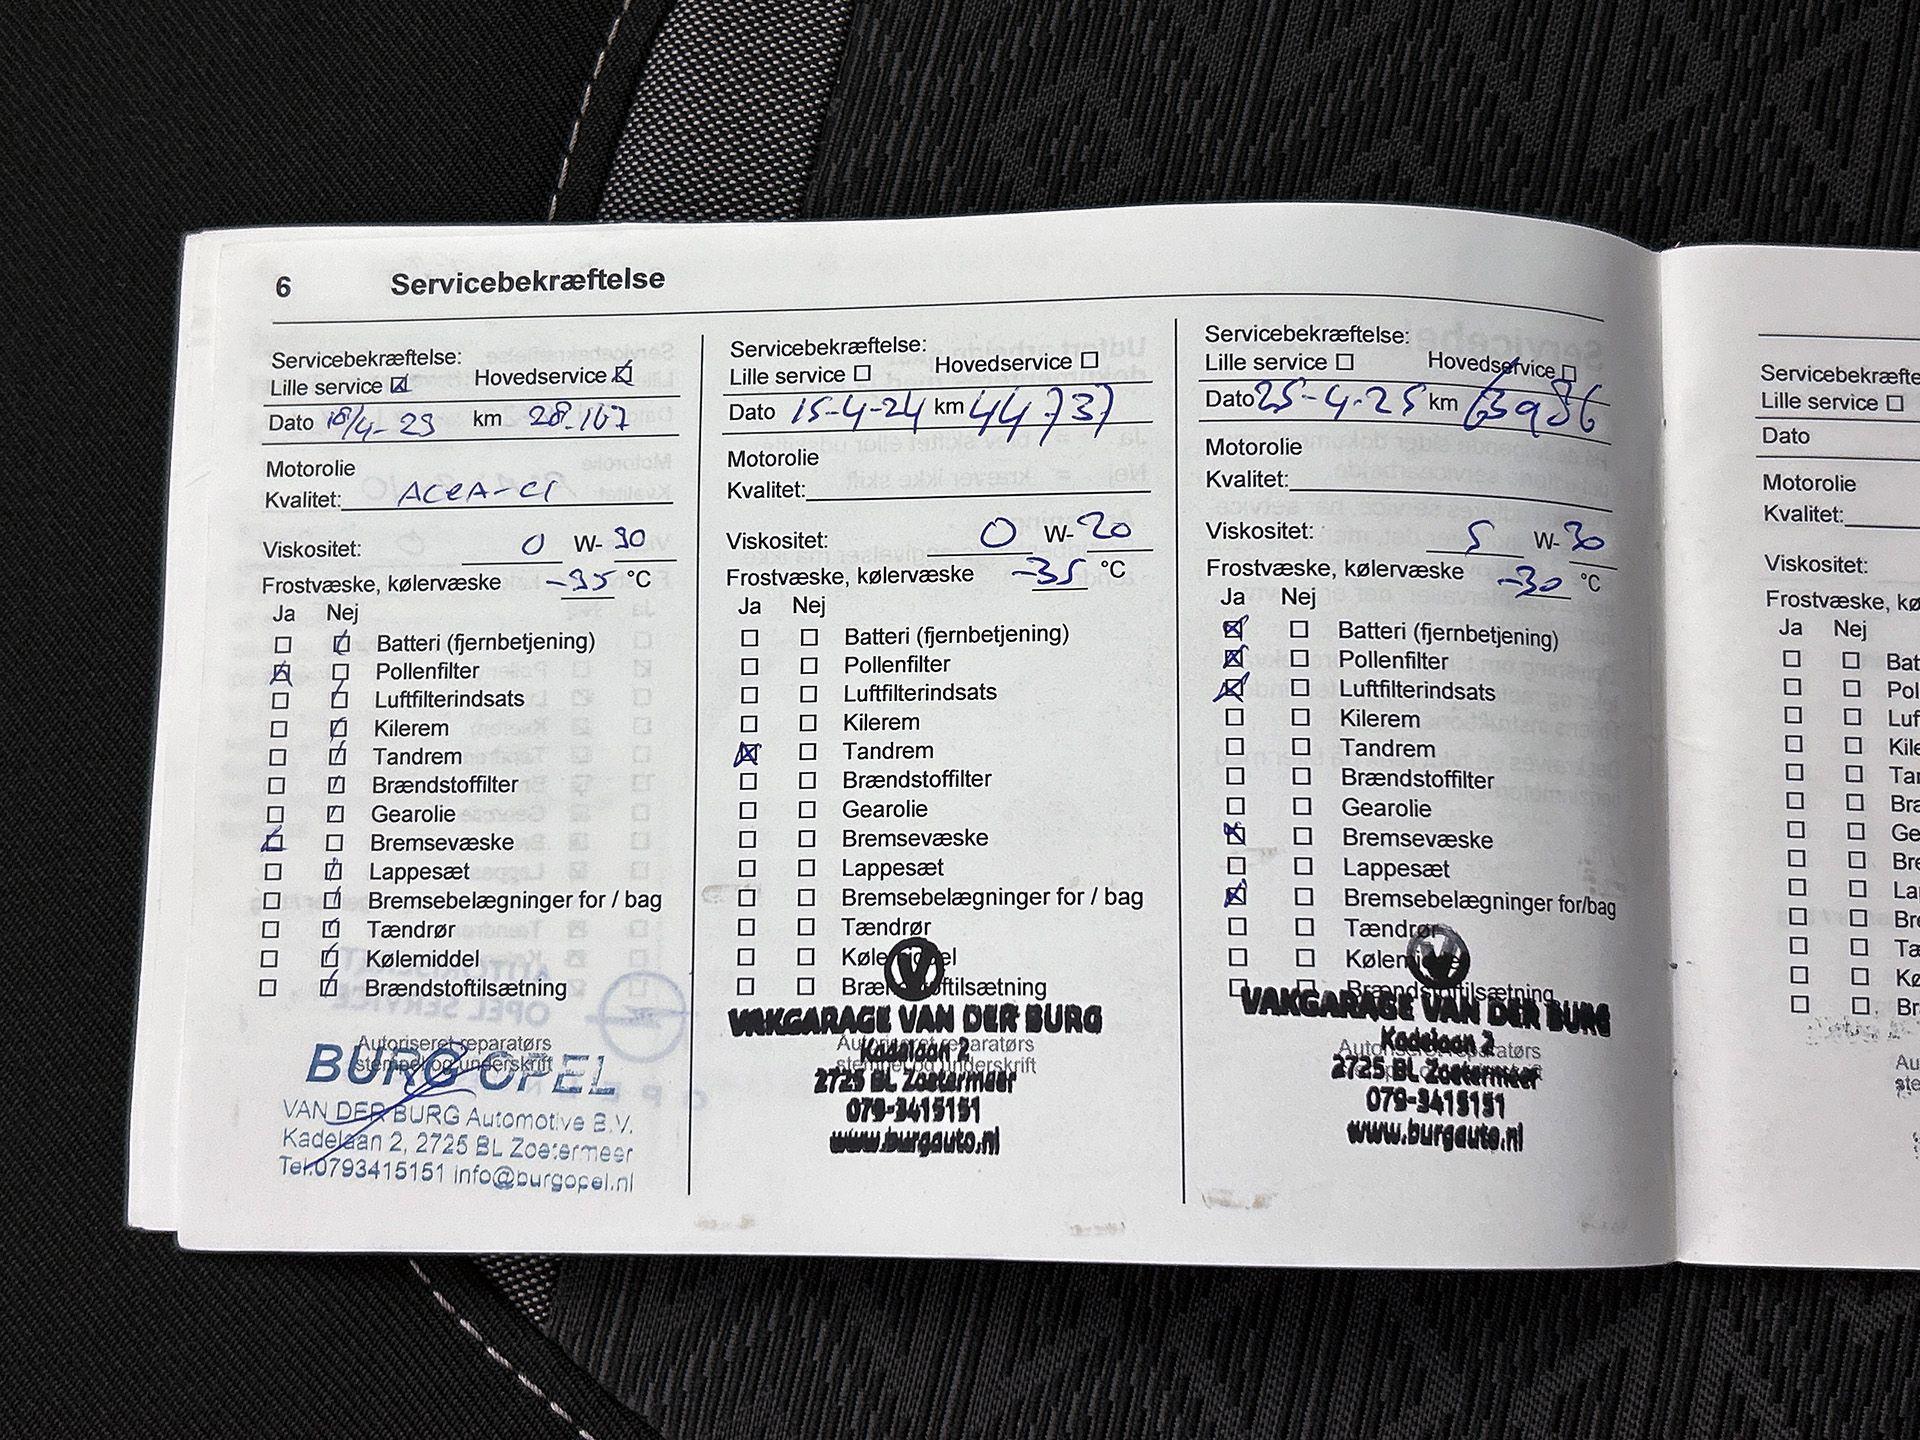 6 Servicebekræftelse
Servicebekræftelse:
Lille service ☒ Hovedservice ☒
Dato 18/4-23 km 28.167
Motorolie
Kvalitet: ACEA-C1
Viskositet: 0 W-30
Frostvæske, kølervæske -35 °C
Ja Nej
Batteri (fjernbetjening)
Pollenfilter
Luftfilterindsats
Kilerem
Tandrem
Brændstoffilter
Gearolie
Bremsevæske
Lappesæt
Bremsebelægninger for / bag
Tændrør
Kølemiddel
Brændstoftilsætning
Autoriseret reparatørs
stempel og underskrift
BURG OPEL
VAN DER BURG Automotive B.V.
Kadelaan 2, 2725 BL Zoetermeer
Tel.0793415151 info@burgopel.nl
Servicebekræftelse:
Lille service ☐ Hovedservice ☐
Dato 15-4-24 km 44737
Motorolie
Kvalitet:
Viskositet: 0 W-20
Frostvæske, kølervæske -35 °C
Ja Nej
Batteri (fjernbetjening)
Pollenfilter
Luftfilterindsats
Kilerem
Tandrem
Brændstoffilter
Gearolie
Bremsevæske
Lappesæt
Bremsebelægninger for / bag
Tændrør
Kølemiddel
Brændstoftilsætning
Autoriseret reparatørs
stempel og underskrift
VAKGARAGE VAN DER BURG
Kadelaan 2
2725 BL Zoetermeer
079-3415151
www.burgauto.nl
Servicebekræftelse:
Lille service ☐ Hovedservice ☐
Dato 25-4-25 km 63986
Motorolie
Kvalitet:
Viskositet: 5 W-30
Frostvæske, kølervæske -30 °C
Ja Nej
Batteri (fjernbetjening)
Pollenfilter
Luftfilterindsats
Kilerem
Tandrem
Brændstoffilter
Gearolie
Bremsevæske
Lappesæt
Bremsebelægninger for/bag
Tændrør
Kølemiddel
Brændstoftilsætning
Autoriseret reparatørs
VAKGARAGE VAN DER BURG
Kadelaan 2
2725 BL Zoetermeer
079-3415151
www.burgauto.nl
Servicebekræfte
Lille service ☐
Dato
Motorolie
Kvalitet:
Viskositet:
Frostvæske, kø
Ja Nej
Bat
Pol
Luf
Kile
Tar
Bra
Ge
Bre
La
Bre
Tæ
Kø
Br
Au